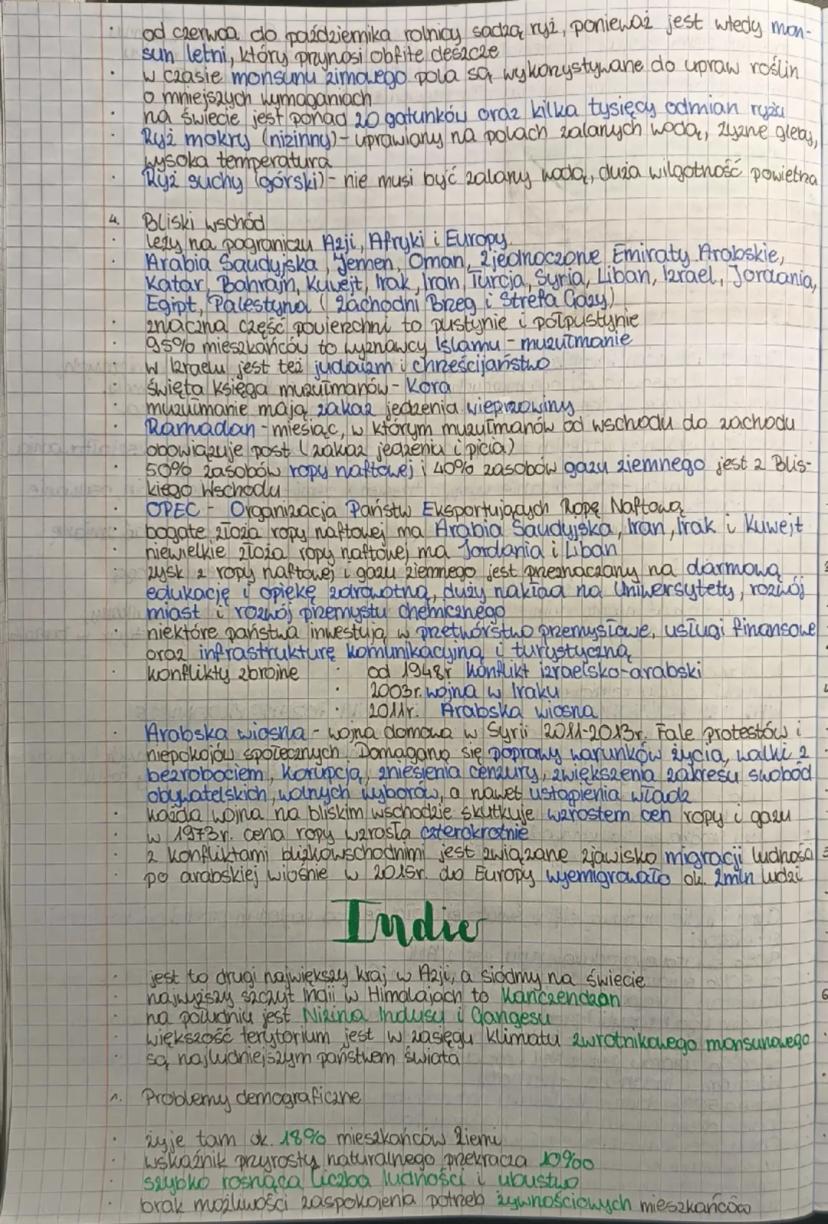 · od czerwca do października rolnicy sadzą ryż, ponieważ jest wtedy mon-
sun letni, który przynosi obfite deszcze
· w czasie monsunu zimowego pola są wykorzystywane do upraw roślin
o mniejszych wymaganiach
· na świecie jest ponad 20 gatunków oraz kilka tysięcy odmian ryżu
· Ryż mokry (nizinny) - uprawiany na polach zalanych wodą, żyzne gleby,
wysoka temperatura
· Ryż suchy (górski) - nie musi być zalany wodą, duża wilgotność powietrza
4. Bliski wschód
· leży na pograniczu Azji, Afryki i Europy
· Arabia Saudyjska, Jemen, Oman, Zjednoczone Emiraty Arabskie,
Katar, Bahrajn, Kuwejt, Irak, Iran, Turcja, Syria, Liban, Izrael, Jordania,
Egipt, Palestyna (Zachodni Brzeg i Strefa Gazy)
· znaczna część powierzchni to pustynie i półpustynie
· 95% mieszkańców to wyznawcy Islamu - muzułmanie
· w Izraelu jest też judaizm i chrześcijaństwo
· święta księga muzułmanów - Kora
· muzułmanie mają zakaz jedzenia wieprzowiny
· Ramadan - miesiąc, w którym muzułmanów od wschodu do zachodu
obowiązuje post (zakaz jedzeniu i picia)
· 50% zasobów ropy naftowej i 40% zasobów gazu ziemnego jest z Blis-
kiego Wschodu
· OPEC - Organizacja Państw Eksportujących Ropę Naftową
· bogate złoża ropy naftowej ma Arabia Saudyjska, Iran, Irak i Kuwejt
· niewielkie złoża ropy naftowej ma Jordania i Liban
· zysk z ropy naftowej i gazu ziemnego jest przeznaczany na darmową
edukację i opiekę zdrowotną, duży nakład na Uniwersytety, rozwój
miast i rozwój przemysłu chemicznego
· niektóre państwa inwestują w przetwórstwo przemysłowe, usługi finansowe
oraz infrastrukturę komunikacyjną i turystyczną
· konflikty zbrojne · od 1948r konflikt izraelsko-arabski
· 2003r. wojna w Iraku
· 2011r. Arabska wiosna
· Arabska wiosna - wojna domowa w Syrii 2011-2013r. Fale protestów i
niepokojów społecznych. Domagano się poprawy warunków życia, walki z
bezrobociem, korupcją, zniesienia cenzury, zwiększenia zakresu swobód
obywatelskich, wolnych wyborów, a nawet ustąpienia władz
· każda wojna na bliskim wschodzie skutkuje wzrostem cen ropy i gazu
· w 1973r. cena ropy wzrosła czterokrotnie
· z konfliktami blizkowschodnimi jest związane zjawisko migracji ludności
· po arabskiej wiośnie w 2015r. do Europy wyemigrowało ok. 2mln ludzi
Indie
· jest to drugi największy kraj w Azji, a siódmy na świecie
· najwyższy szczyt Indii w Himalajach to Kanczendzan
· na południu jest Nizina Indusu i Gangesu
· większość terytorium jest w zasięgu klimatu zwrotnikowego monsunowego
· są najludniejszym państwem świata
1. Problemy demograficzne
· żyje tam ok. 18% mieszkańców Ziemi
· wskaźnik przyrostu naturalnego przekracza 10‰
· szybko rosnąca liczba ludności i ubóstwo
· brak możliwości zaspokojenia potrzeb żywnościowych mieszkańców